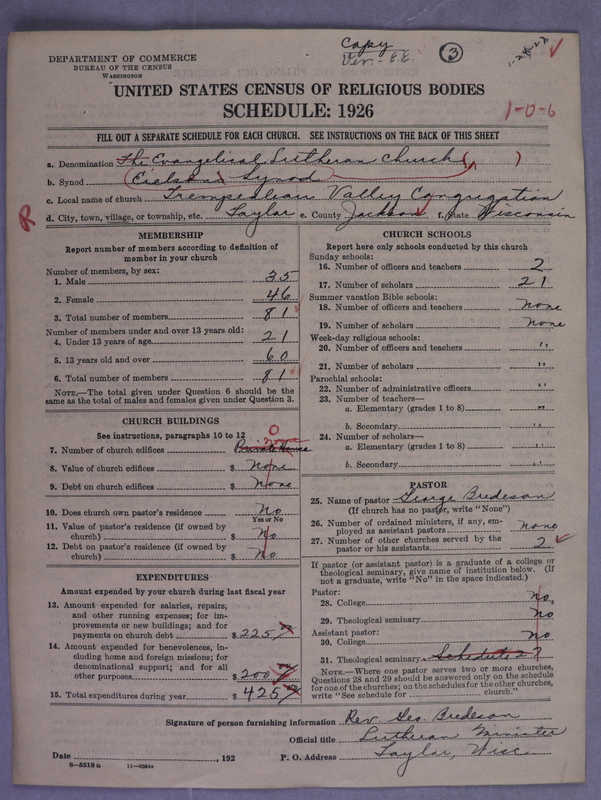 Copy
Ver. E.E.
3
DEPARTMENT OF COMMERCE
BUREAU OF THE CENSUS
WASHINGTON
UNITED STATES CENSUS OF RELIGIOUS BODIES
SCHEDULE: 1926
1-0-6
FILL OUT A SEPARATE SCHEDULE FOR EACH CHURCH. SEE INSTRUCTIONS ON THE BACK OF THIS SHEET
a. Denomination The Evangelical Lutheran Church ( )
b. Synod (Eielsens Synod)
c. Local name of church Trempealeau Valley Congregation
d. City, town, village, or township, etc. Taylor e. County Jackson f. State Wisconsin
R
MEMBERSHIP
Report number of members according to definition of member in your church
Number of members, by sex:
1. Male 35
2. Female 46
3. Total number of members 81
Number of members under and over 13 years old:
4. Under 13 years of age 21
5. 13 years old and over 60
6. Total number of members 81
NOTE.—The total given under Question 6 should be the
same as the total of males and females given under Question 3.
CHURCH BUILDINGS
See instructions, paragraphs 10 to 12
0
none
7. Number of church edifices Private House
8. Value of church edifices $ none
9. Debt on church edifices $ none
10. Does church own pastor's residence? No
Yes or No
11. Value of pastor's residence (if owned by
church) $ No
12. Debt on pastor's residence (if owned by
church) $ No
EXPENDITURES
Amount expended by your church during last fiscal year
13. Amount expended for salaries, repairs,
and other running expenses; for im-
provements or new buildings; and for
payments on church debt $ 225
14. Amount expended for benevolences, in-
cluding home and foreign missions; for
denominational support; and for all
other purposes $ 200
15. Total expenditures during year $ 425
CHURCH SCHOOLS
Report here only schools conducted by this church
Sunday schools:
16. Number of officers and teachers 2
17. Number of scholars 21
Summer vacation Bible schools:
18. Number of officers and teachers none
19. Number of scholars none
Week-day religious schools:
20. Number of officers and teachers "
21. Number of scholars "
Parochial schools:
22. Number of administrative officers "
23. Number of teachers—
a. Elementary (grades 1 to 8) "
b. Secondary "
24. Number of scholars—
a. Elementary (grades 1 to 8) "
b. Secondary "
PASTOR
25. Name of pastor George Bredeson
(If church has no pastor, write "None")
26. Number of ordained ministers, if any, em-
ployed as assistant pastors none
27. Number of other churches served by the
pastor or his assistants 2
If pastor (or assistant pastor) is a graduate of a college or
theological seminary, give name of institution below. (If
not a graduate, write "No" in the space indicated.)
Pastor:
28. College no
29. Theological seminary no
Assistant pastor:
30. College no
31. Theological seminary
NOTE.—Where one pastor serves two or more churches,
Questions 28 and 29 should be answered only on the schedule
for one of the churches; on the schedules for the other churches,
write "See schedule for church."
Signature of person furnishing information Rev. Geo. Bredeson
Official title Lutheran Minister
Date , 192 P. O. Address Taylor, Wisc.
8—5518 a